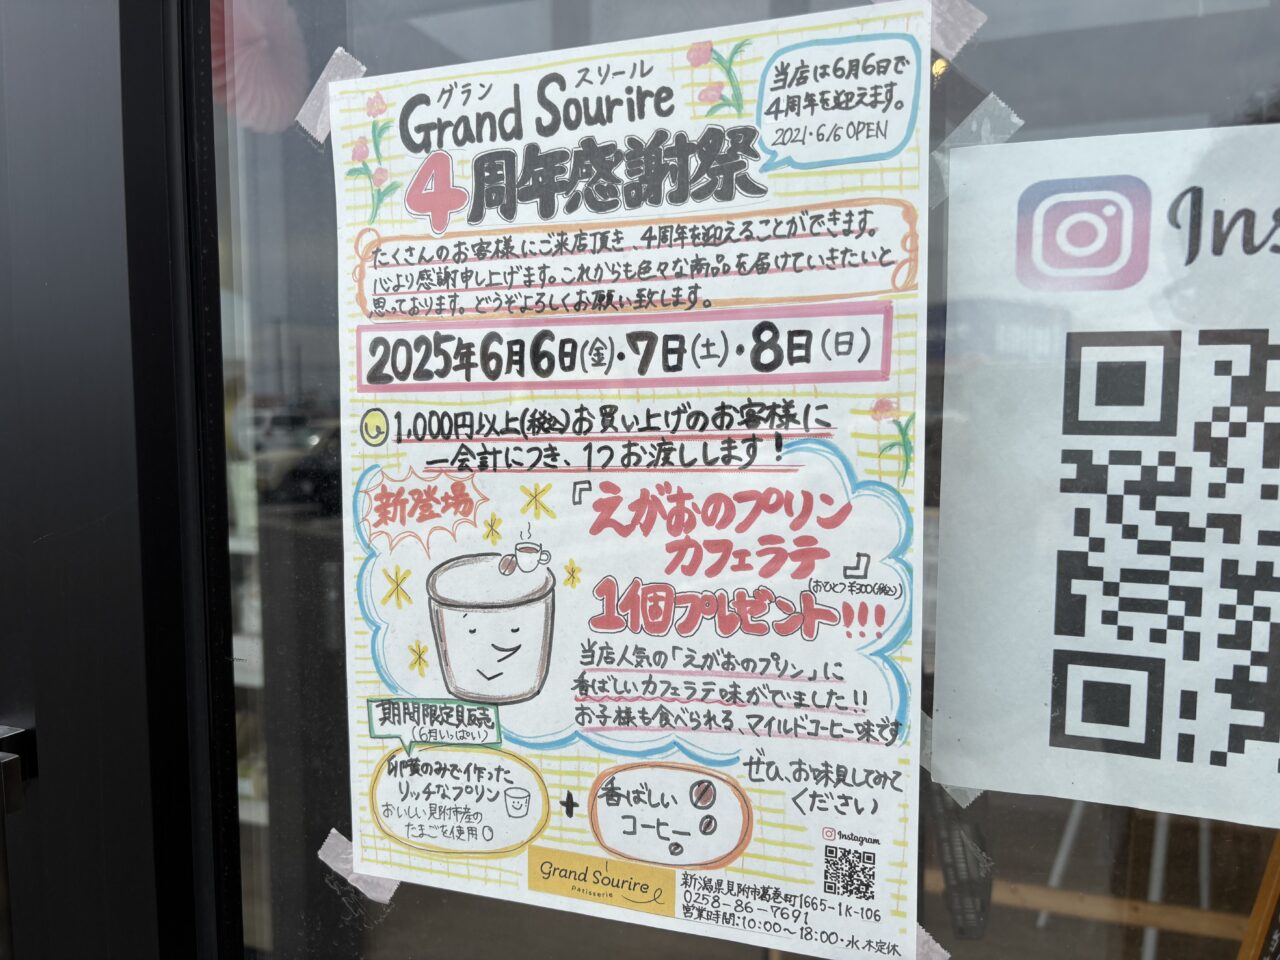 グラン スリール
Grand Sourire
4周年感謝祭
当店は6月6日で
4周年を迎えます。
2021.6/6 OPEN
たくさんのお客様にご来店頂き、4周年を迎えることができます。
心より感謝申し上げます。これからも色々な商品を届けていきたいと
思っております。どうぞよろしくお願い致します。
2025年6月6日(金)・7日(土)・8日(日)
1,000円以上(税込)お買い上げのお客様に
一会計につき、1つお渡しします!
新登場
『えがおのプリン
カフェラテ』
(おひとつ¥300(税込))
1個プレゼント!!!
当店人気の「えがおのプリン」に
香ばしいカフェラテ味がでました!!
お子様も食べられる、マイルドコーヒー味です
ぜひ、お味見してみて
ください
期間限定販売
(6月いっぱい)
卵黄のみで作った
リッチなプリン
おいしい見附市産の
たまごを使用
+
香ばしい
コーヒー
Grand Sourire
patisserie
Instagram
新潟県見附市葛巻町1665-1K-106
0258-86-7691
営業時間:10:00~18:00・水、木定休
Ins